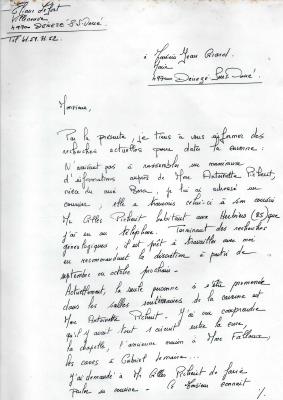 Villeneuve
49700 DENEZÉ S/S-Doué
Tél 41.59.21.62
à Monsieur Jean Girard.
Maire
49700 Denezé Sous Doué.
Monsieur,
Par la présente, je tiens à vous informer des
recherches actuelles pour dater la caverne :
N'arrivant pas à rassembler un maximum
d'informations auprès de Mme Antoinette Pichent,
nièce du curé, je lui ai adressé un
courrier, elle a transmis celui-ci à son cousin
Mr Gilles Pichent habitant aux Herbiers (85) que
j'ai eu au téléphone. Terminant des recherches
généalogiques, il est prêt à travailler avec moi
en recommandant la discrétion à partir de
septembre ou octobre prochain.
Actuellement, la seule personne à s'être promenée
dans les salles souterraines de la caverne est
Mme Antoinette Pichent. J'ai cru comprendre
qu'il y avait tout l'circuit entre la cure,
la chapelle, l'ancienne maison à Mme Falloux,
les caves à Gabriel
J'ai demandé à Mr Gilles Pichent de faire
Ce Monsieur connait